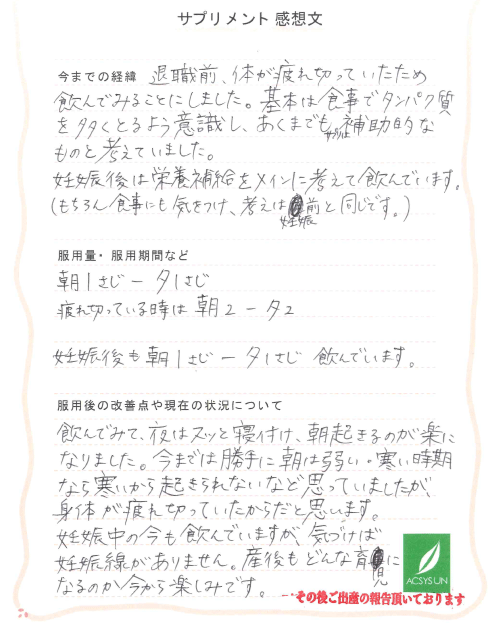 サプリメント 感想文
今までの経緯 退職前、体が疲れ切っていたため
飲んでみることにしました。基本は食事でタンパク質
を多くとるよう意識し、あくまでも補助的な
ものと考えていました。
妊娠後は栄養補給をメインに考えて飲んでいます。
(もちろん食事にも気をつけ、考えは妊娠前と同じです。)
服用量・服用期間など
朝1さじ ー 夕1さじ
疲れ切っている時は 朝2 ー 夕2
妊娠後も朝1さじ ー 夕1さじ 飲んでいます。
服用後の改善点や現在の状況について
飲んでみて、夜はスッと寝付け、朝起きるのが楽に
なりました。今までは勝手に朝は弱い・寒い時期
なら寒いから起きられないなど思っていましたが、
身体が疲れ切っていたからだと思います。
妊娠中の今も飲んでいますが、気づけば
妊娠線がありません。産後もどんな育児に
なるのか今から楽しみです。
ACSYSUN
…その後ご出産の報告頂いております